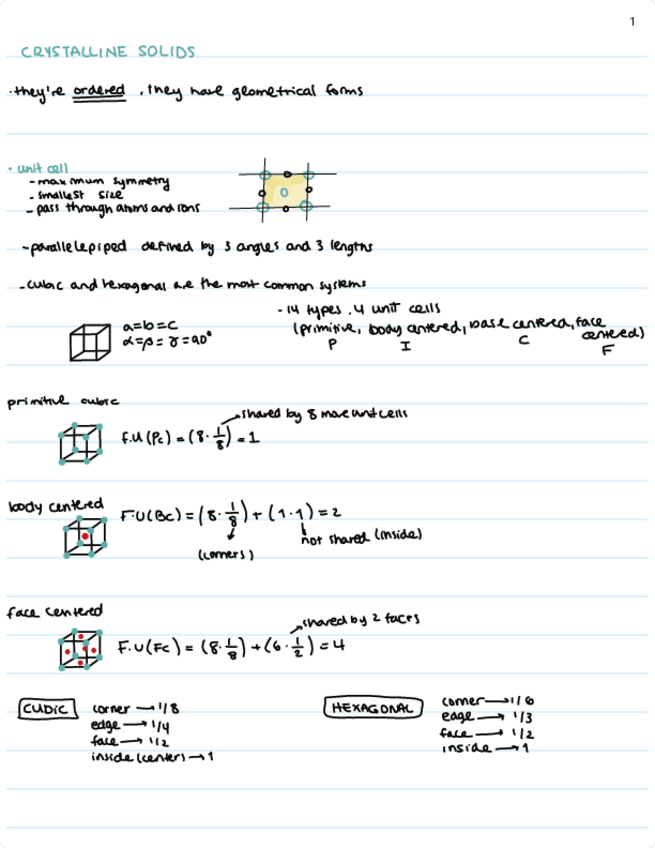 1
CRYSTALLINE SOLIDS
·they're ordered , they have geometrical forms
• unit cell
- maximum symmetry
- smallest size
- pass through atoms and ions
-parallelepiped defined by 3 angles and 3 lengths
-cubic and hexagonal are the most common systems
- 14 types . 4 unit cells
(primitive, body centered, base centered, face centered)
P I C F
a=b=c
α=β=γ=90°
primitive cubic
shared by 8 more unit cells
f.U(Pc) = (8·1/8) = 1
body centered
F.U(BC) = (8·1/8) + (1·1) = 2
(corners)
not shared (inside)
face centered
shared by 2 faces
F.U(FC) = (8·1/8) + (6·1/2) = 4
CUBIC
corner → 1/8
edge → 1/4
face → 1/2
inside (center) → 1
HEXAGONAL
corner → 1/6
edge → 1/3
face → 1/2
inside → 1